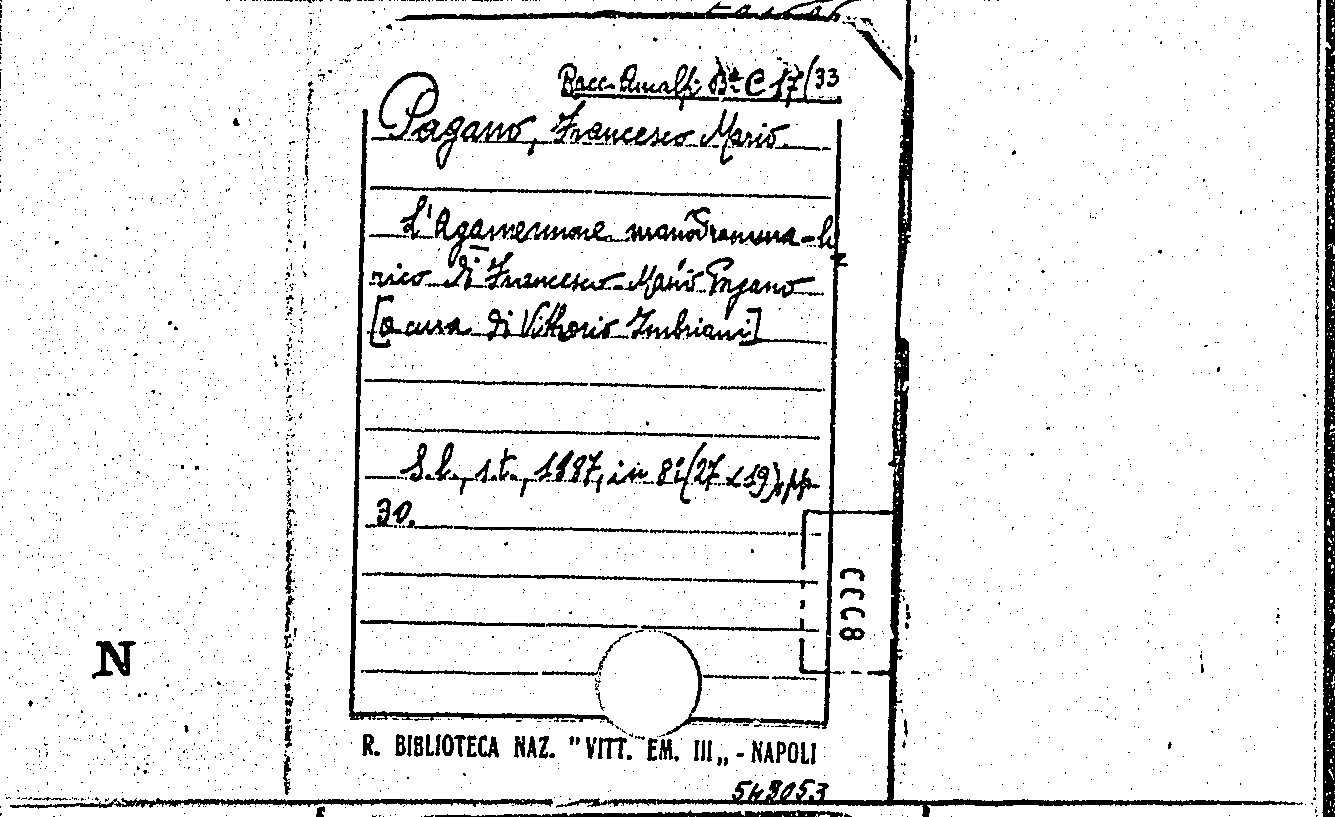 Racc. Amalfi Bª C 17/33
Pagano, Francesco Mario.
L'Agamennone monodramma-li
rico di Francesco Mario Pagano
[a cura di Vittorio Imbriani]
S.l., s.t., 1887, in 8º (27 x 19), pp.
30.
8
N
R. BIBLIOTECA NAZ. "VITT. EM. III„ - NAPOLI
548053